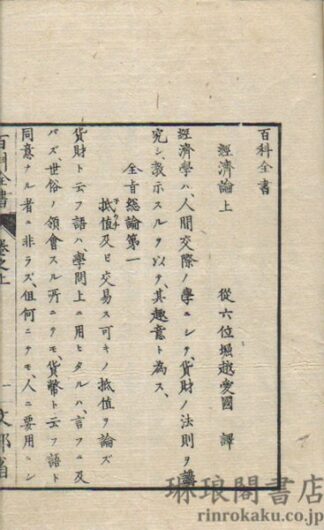 百科全書
經濟論上　從六位堀越愛國 譯
經濟學ハ、人間交際ノ學ニシテ、貨財ノ法則ヲ講
究シ、教示スルヲ以テ、其趣意ト為ス、
全旨総論第一
抵值及ビ交易ス可キノ抵值ヲ論ズ
貨財ト云フ語ハ、學問上ニ用ヒタルハ、言フニ及
バズ、世俗ノ領會スル所ニテモ、貨幣ト云フ語ト
同意ナル者ニ非ラズ、但何ニテモ、人ニ要用ニシ
百科全書 卷之上 一 文部省
琳琅閣書店
rinrokaku.co.jp